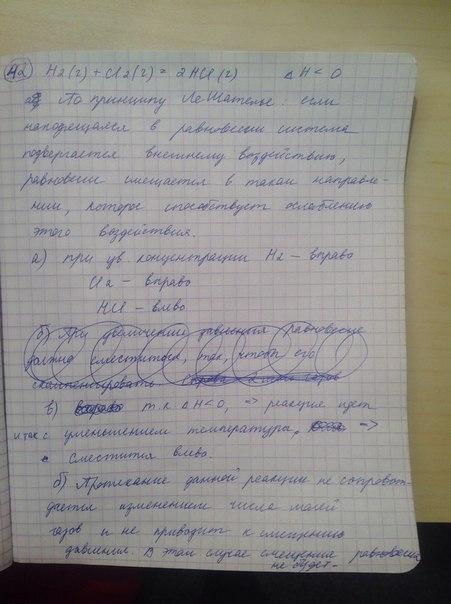 42 H2(г) + Cl2(г) = 2HCl(г) ΔH < 0
По принципу Ле Шателье: если
находящаяся в равновесии система
подвергается внешнему воздействию,
равновесие смещается в таком направле-
нии, которое способствует ослаблению
этого воздействия.
а) при ув концентрации H2 – вправо
Cl2 – вправо
HCl – влево
б) При увеличение давления равновесие
должно сместиться, так, чтобы его
скомпенсировать газов
в) т.к. ΔH<0, => реакция идет
и так с уменьшением температуры, =>
сместится влево.
б) Протекание данной реакции не сопровож-
дается изменением числа молей
газов и не приводит к смещению
давления. В этом случае смещения равновесия
не будет.